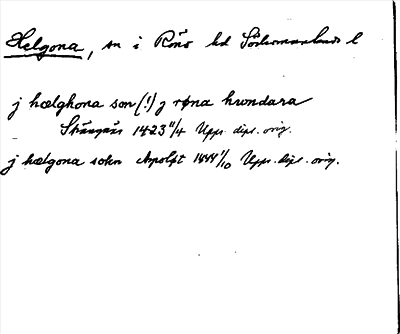 Helgona, sn i Rönö hd Södermanlands l
j hælghona son (!) j røna hundara
Skängnäs 1423 11/4 Upps. dipl. orig.
j hælgona sokn 1444 1/10 Upps. dipl. orig.